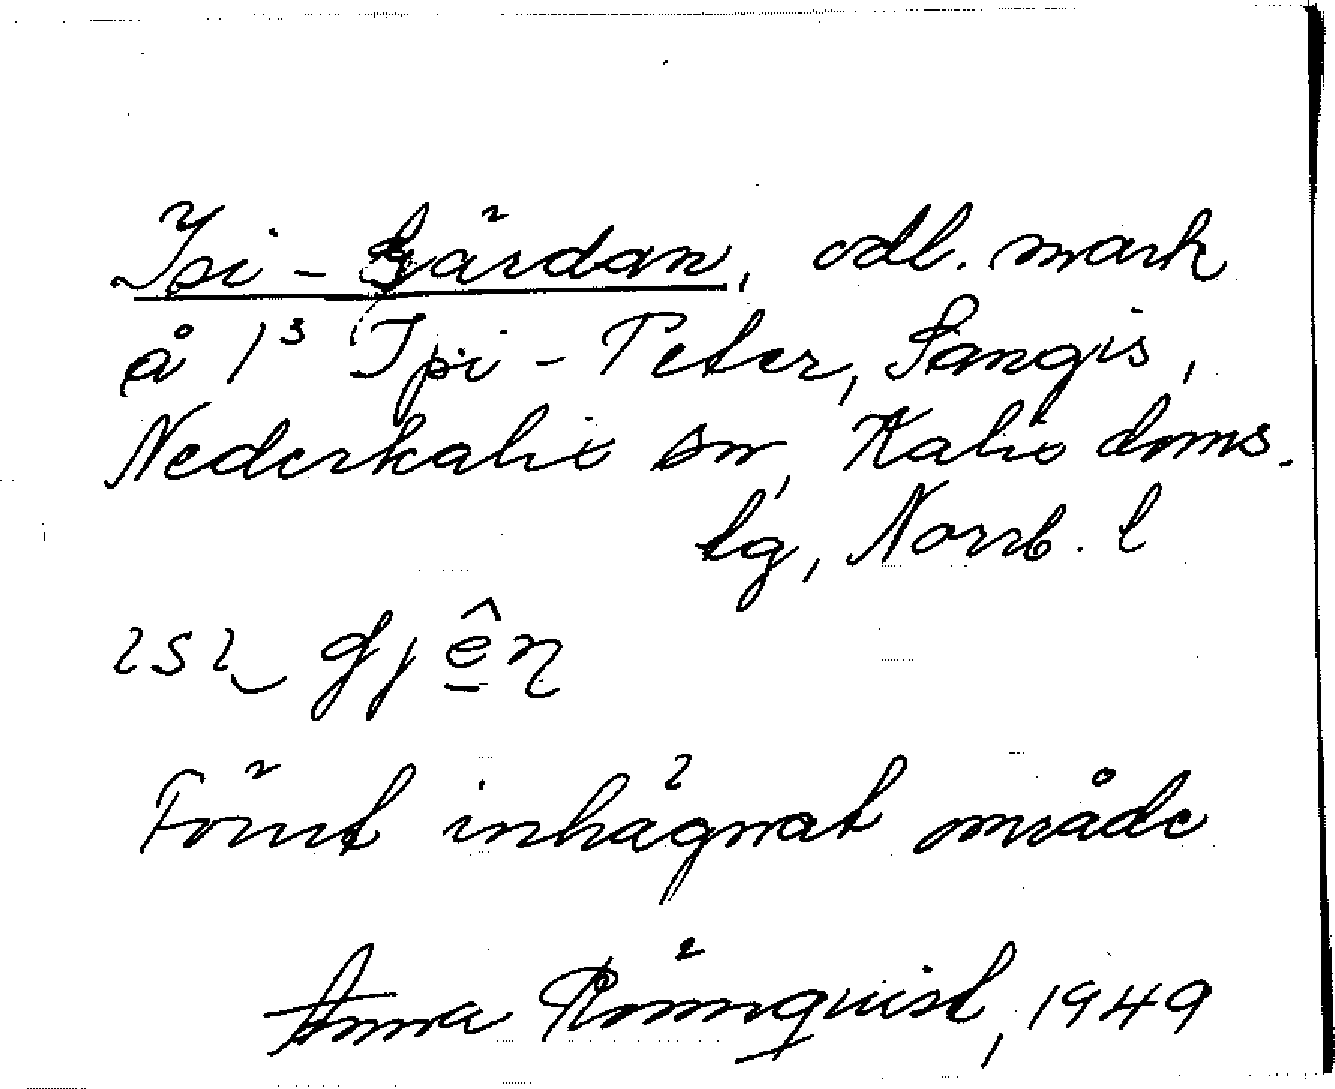 Ipi-Gärdan, odl. mark
å 1³ Ipi-Peter, Sangis,
Nederkalix sn, Kalix doms.
lg, Norrb. l
gjên
Förut inhägnat område
Anna Rönnquist, 1949